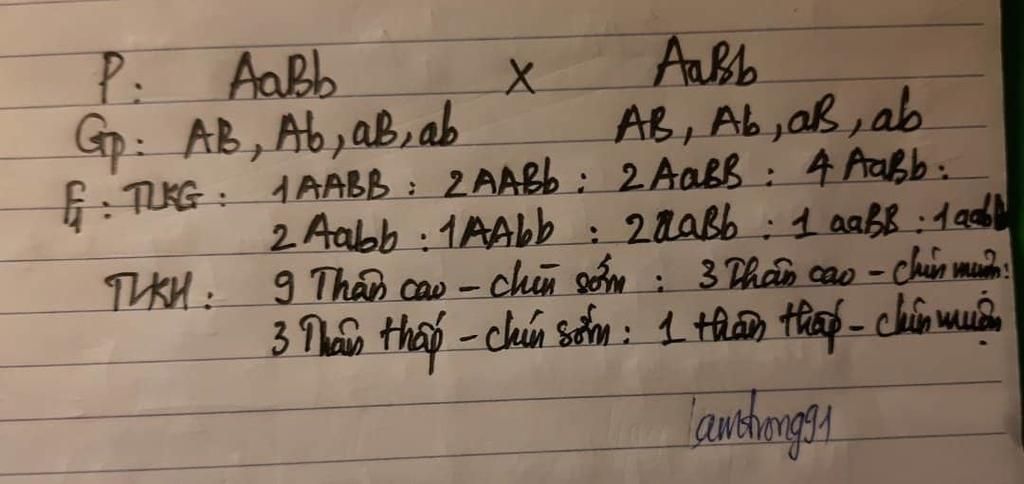 P: AaBb X AaBb
Gp: AB, Ab, aB, ab AB, Ab, aB, ab
F1: TLKG: 1AABB : 2AABb : 2AaBB : 4 AaBb :
2 Aabb : 1AAbb : 2aaBb : 1 aaBB : 1aabb
TLKH: 9 Thân cao - chín sớm : 3 Thân cao - chín muộn :
3 Thân thấp - chín sớm : 1 thân thấp - chín muộn
lamtrong91